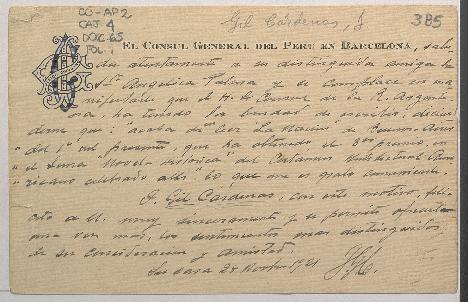 CG-AP2
CAJ. 4
DOC. 65
FOL. 1
Gil Cárdenas, J
385
EL CONSUL GENERAL DEL PERU EN BARCELONA, salu-
da atentamente a su distinguida amiga la
Sta Angélica Palma y se complace en ma-
nifestarle que el H. Sr. Consul de la R. Argenti-
na, ha tenido la bondad de escribir, dicien-
dome que: acaba de leer La Nacion de Buenos Aires
"del 1º del presente, que ha obtenido el premio, en
"el tema Novela histórica" del Certamen
celebrado allí" lo que me es grato comunicar.
J. Gil Cárdenas, con este motivo, feli-
cita a U. muy sinceramente y se permite ofrecerle
una vez más, los sentimientos mas distinguidos
de su consideracion y amistad.
Su casa 28 1921